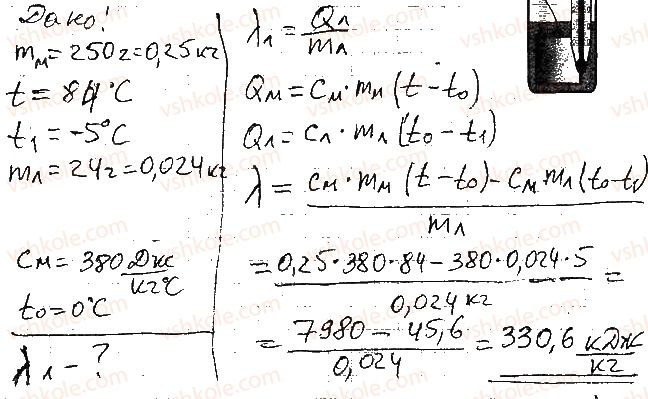 Дано!
mм = 250 г = 0,25 кг
t = 84 °C
t₁ = -5°C
mл = 24 г = 0,024 кг
cм = 380 Дж/кг°C
t₀ = 0°C
λл - ?
λ₁ = Qл/mл
Qм = cм · mл (t - t₀)
Qл = cл · mл (t₀ - t₁)
λ = cм · mм (t - t₀) - cм · mл (t₀ - t₁)/mл
= 0,25 · 380 · 84 - 380 · 0,024 · 5/0,024 кг =
= 7980 - 45,6/0,024 = 330,6 кДж/кг
vshkole.com